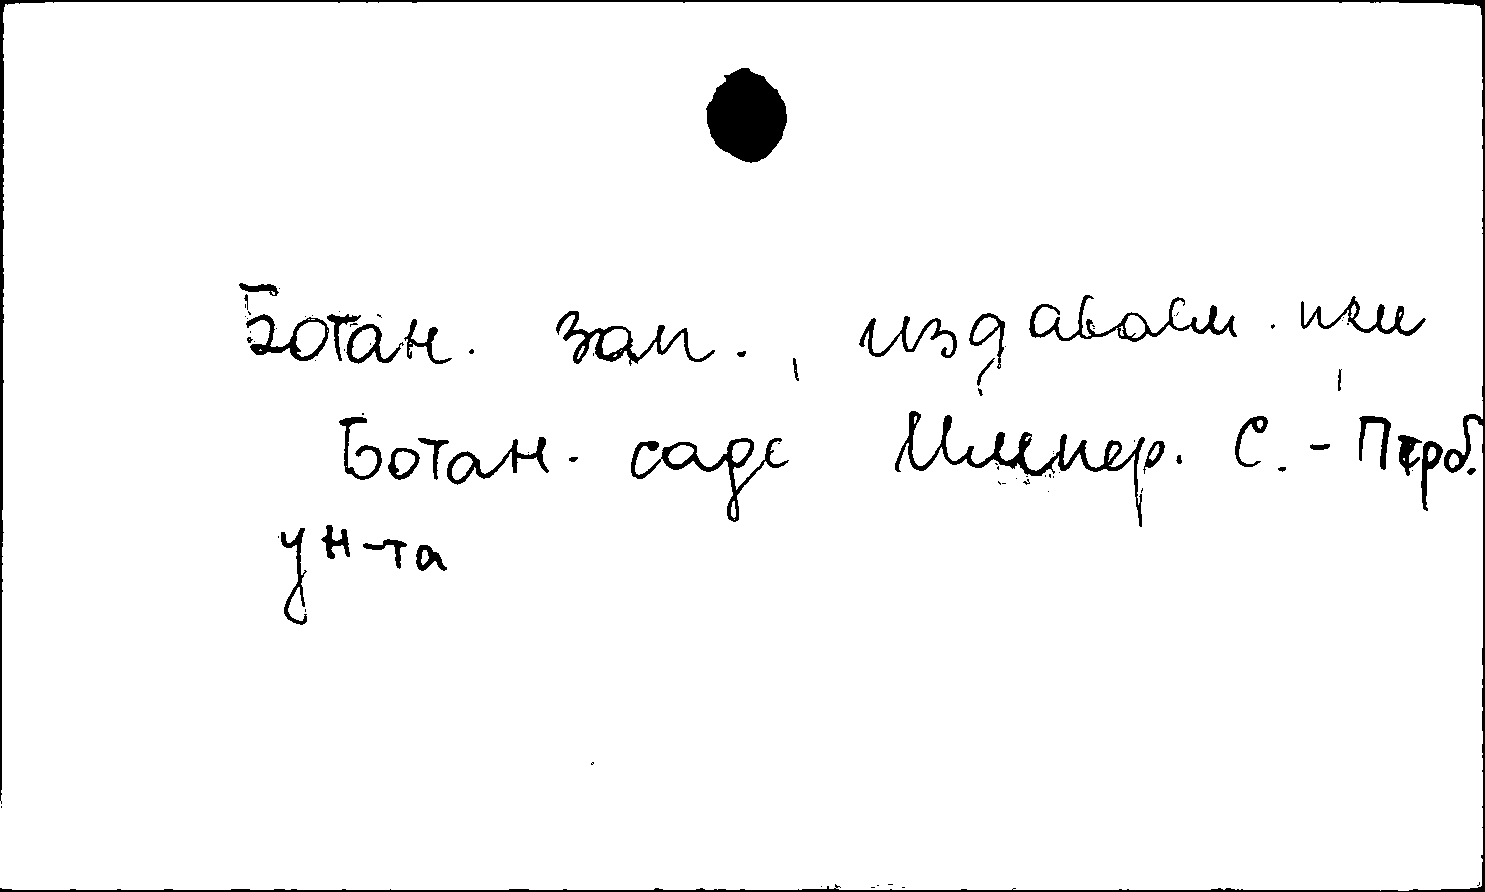 Ботан. зап., издаваем. при
Ботан. саде Импер. С.-Петрб.
ун-та